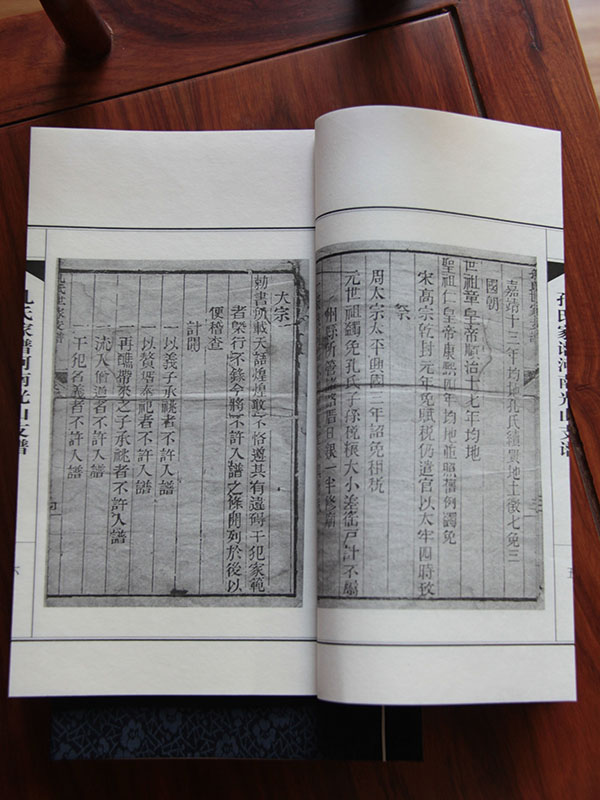 孔氏家谱河南光山支谱
五
嘉靖十三年均地孔氏續置地土徵七免三
國朝
世祖章皇帝順治十七年均地
聖祖仁皇帝康熙四年均地並照舊例蠲免
宋高宗乾封元年免賦稅仍遣官以太牢四時致
祭
周太宗太平興國三年詔免租稅
元世祖蠲免孔氏子孫稅糧大小差徭戶計不編
州縣所管 曆日銀一半修廟
大宗
勅書所載天語煌煌敢不恪遵其有違碍干犯家範
者槩行不錄今將不許入譜之條開列於後以
便稽查
計開
一以義子承祧者不許入譜
一以贅壻奉祀者不許入譜
一再醮帶來之子承祧者不許入譜
一流入僧道者不許入譜
一干犯名義者不許入譜
孔氏家譜河南光山支譜
六